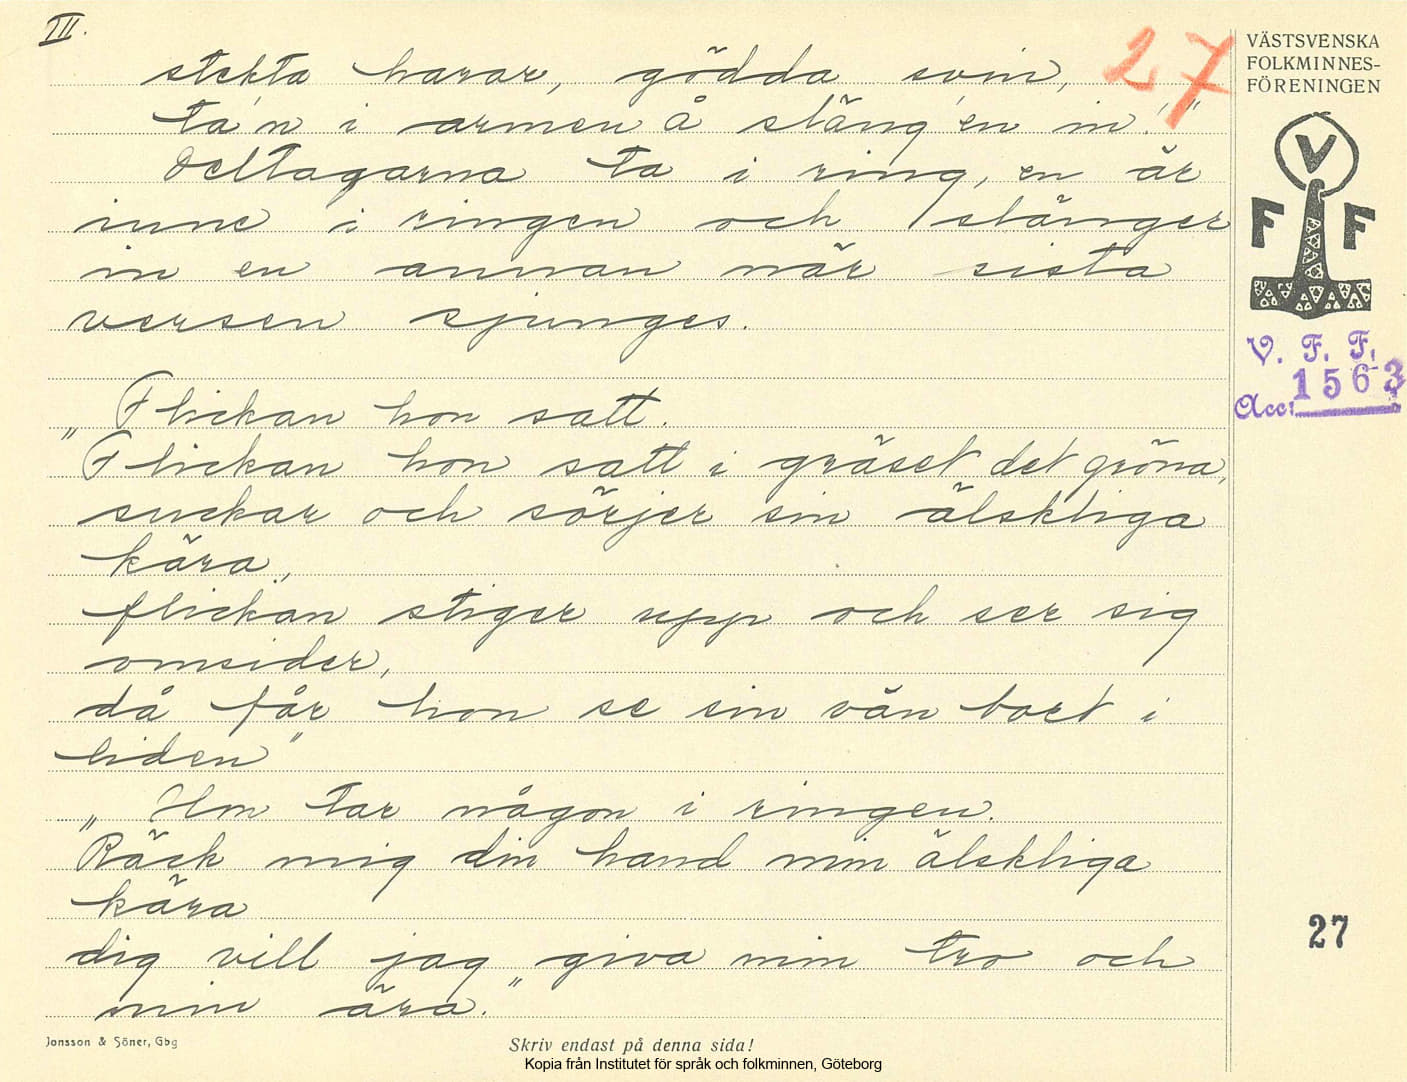 III.
27
stekta harar, gödda svin,
ta'n i armen å släng'en in!"
Deltagarna ta i ring, en är
inne i ringen och slänger
in en annan när sista
versen sjunges.
Flickan hon satt.
"Flickan hon satt i gräset det gröna,
suckar och sörjer sin älskliga
kära,
flickan stiger upp och ser sig
omsider,
då får hon se sin vän bort i
liden"
Hon tar någon i ringen.
"Räck mig din hand min älskliga
kära
dig vill jag giva min tro och
min ära."
VÄSTSVENSKA
FOLKMINNES-
FÖRENINGEN
V
F F
V. F. F.
Acc: 1563
27
Jonsson & Söner, Gbg
Skriv endast på denna sida!
Kopia från Institutet för språk och folkminnen, Göteborg